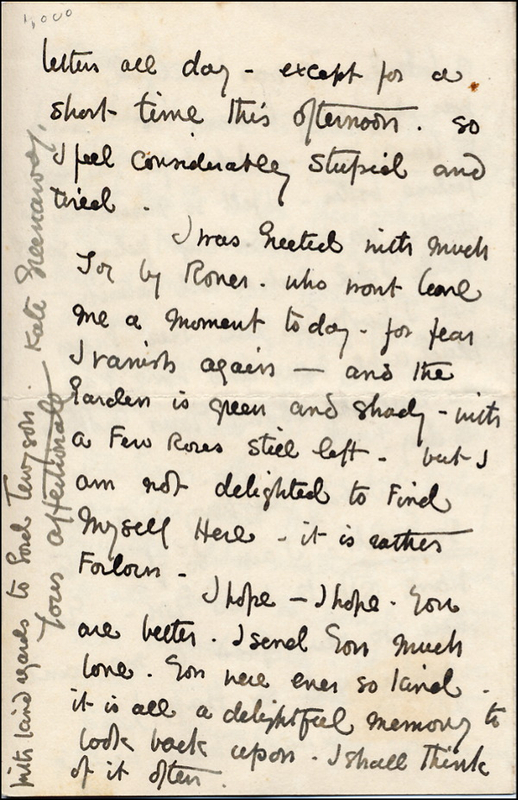 1,000
letters all day - except for a
short time this afternoon. so
I feel considerably stupid and
tired.
I was Greeted with much
Joy by Rover. who wont leave
me a moment today - for fear
I vanish again — and the
Garden is green and shady - with
a Few Roses still left - but I
am not delighted to Find
Myself Here - it is rather
Forlorn -
I hope - I hope. You
are better. I send You much
love. You were ever so kind.
it is all a delightful memory to
look back upon. I shall think
of it often.
with kind regards to Lord Tennyson.
Yours affectionately
Kate Greenaway.